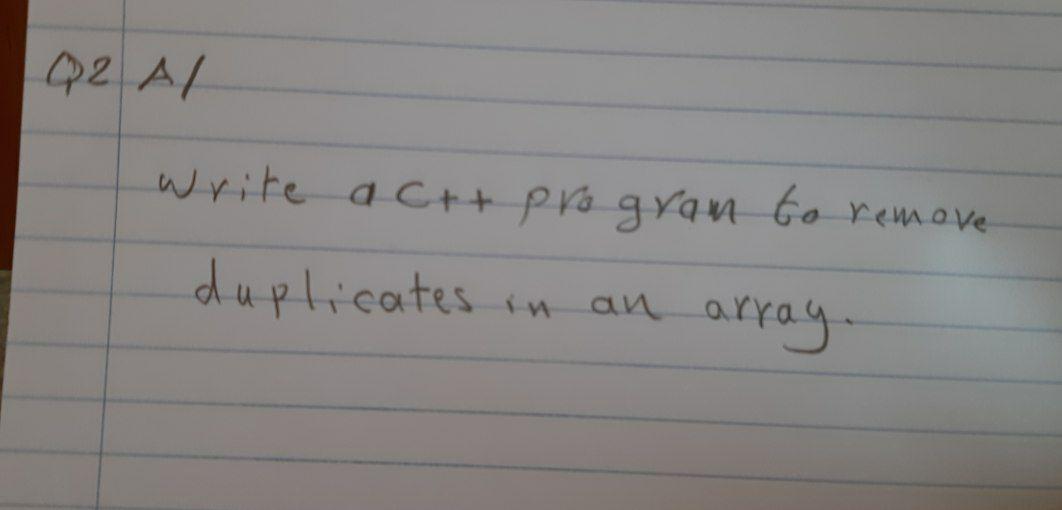 Q2 A/
Write a C++ program to remove
duplicates in an array.